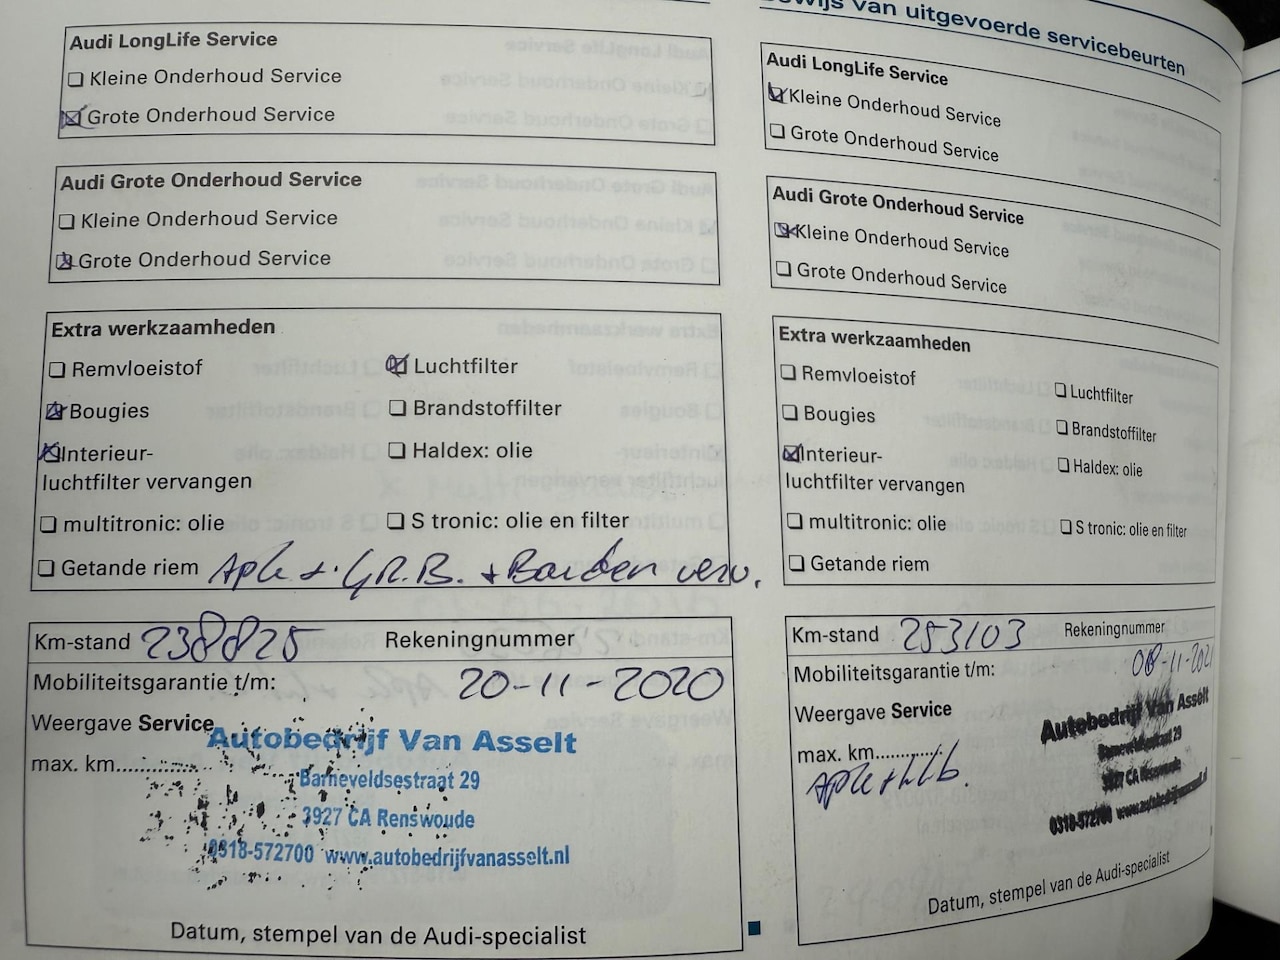 Audi LongLife Service
Kleine Onderhoud Service
Grote Onderhoud Service
Audi Grote Onderhoud Service
Kleine Onderhoud Service
Grote Onderhoud Service
Extra werkzaamheden
Remvloeistof
Luchtfilter
Bougies
Brandstoffilter
Interieur-
luchtfilter vervangen
Haldex: olie
multitronic: olie
S tronic: olie en filter
Getande riem Apk + GR.B. + Banden verv.
Km-stand 238825 Rekeningnummer
Mobiliteitsgarantie t/m: 20-11-2020
Weergave Service
max. km..............
Autobedrijf Van Asselt
Barneveldsestraat 29
3927 CA Renswoude
0318-572700 www.autobedrijfvanasselt.nl
Datum, stempel van de Audi-specialist
van uitgevoerde servicebeurten
Audi LongLife Service
Kleine Onderhoud Service
Grote Onderhoud Service
Audi Grote Onderhoud Service
Kleine Onderhoud Service
Grote Onderhoud Service
Extra werkzaamheden
Remvloeistof
Luchtfilter
Bougies
Brandstoffilter
Interieur-
luchtfilter vervangen
Haldex: olie
multitronic: olie
S tronic: olie en filter
Getande riem
Km-stand 253103 Rekeningnummer
Mobiliteitsgarantie t/m: 08-11-2021
Weergave Service
max. km..............
Autobedrijf Van Asselt
Barneveldsestraat 29
3927 CA Renswoude
0318-572700 www.autobedrijfvanasselt.nl
Datum, stempel van de Audi-specialist